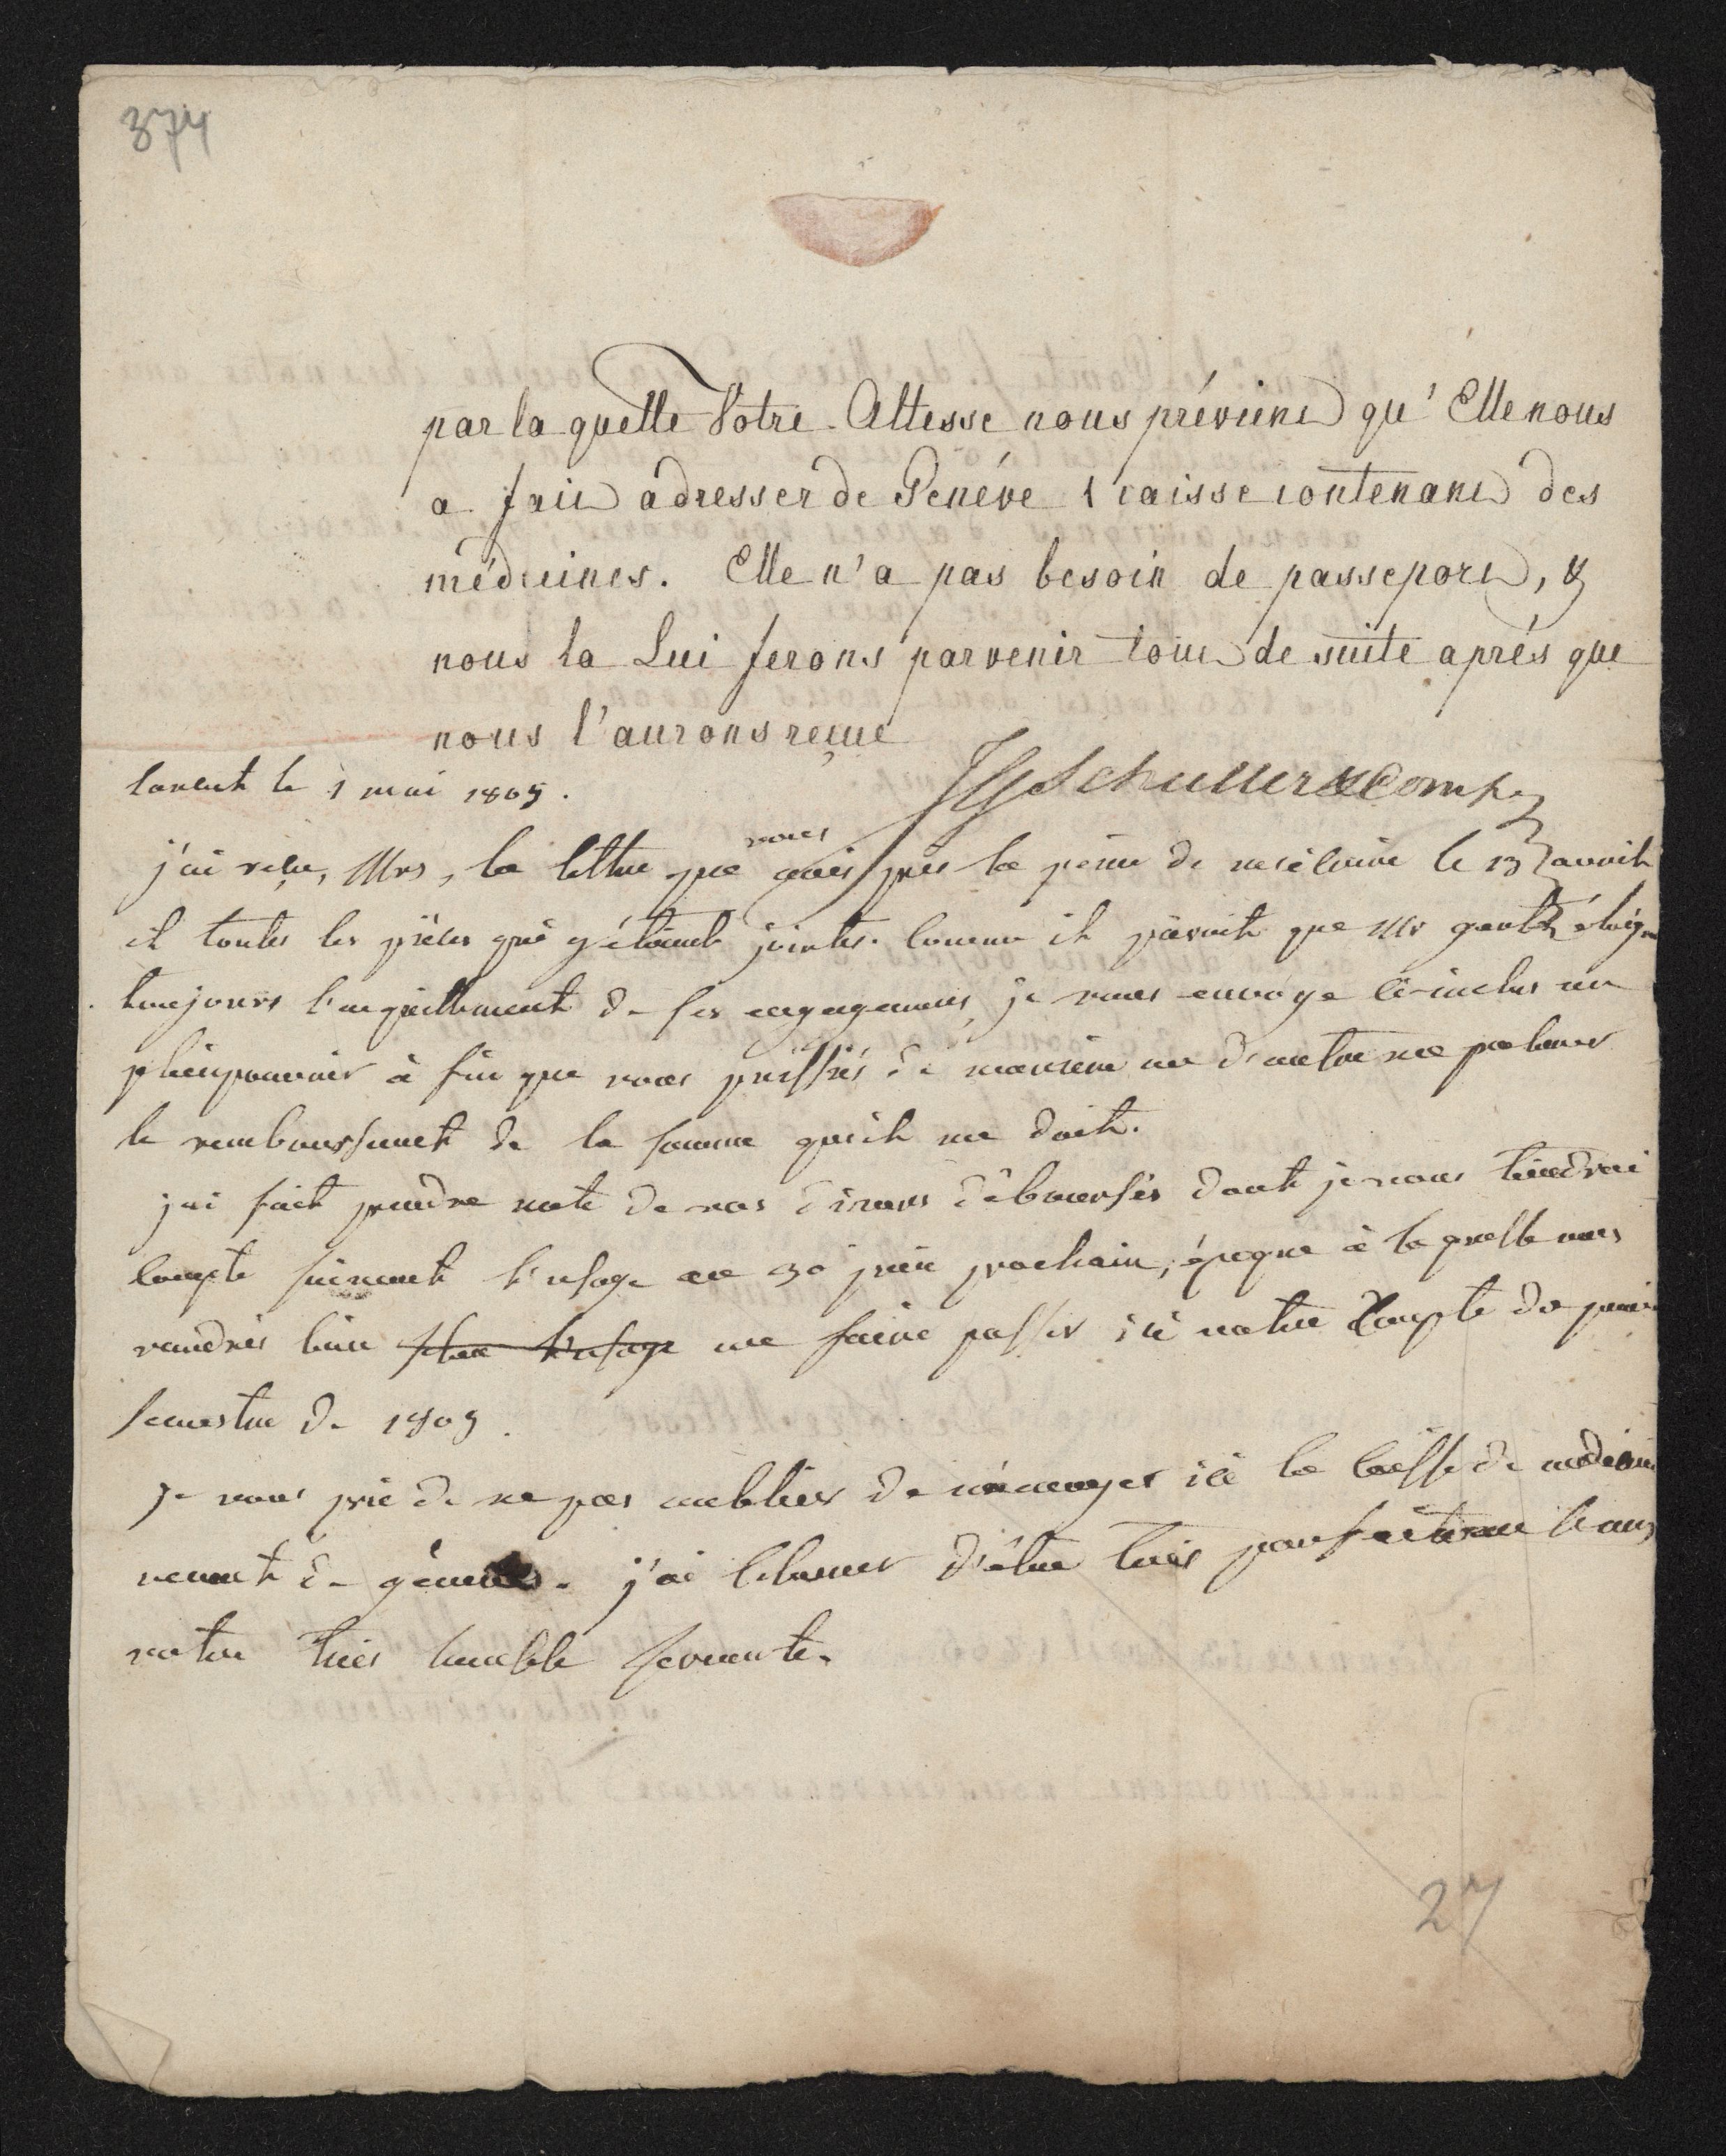 374
par la quelle Votre Altesse nous prévient qu'Elle nous
a fait adresser de Genéve 1 caisse contenant des
médecines. Elle n'a pas besoin de passeport, &
nous la Lui ferons parvenir tout de suite aprés que
nous l'aurons reçue
Schuller & Comp
le 1 mai 1809.
j'ai reçu, Mrs, la lettre que vous aviez pris la peine de m'écrire le 13 avril
et toutes les piéces qui y étoient jointes. comme il paroit que Mr
toujours l'acquittement de ses engagemens, je vous envoye ci-inclus un
pleinpouvoir à fin que vous puissiés de maniere ou d'autre me procurer
le remboursement de la somme qu'il me doit.
j'ai fait prendre note de vos divers déboursés dont je vous tiendrai
compte suivant l'usage au 30 juin prochain, époque à la quelle vous
voudrés bien selon l'usage me faire passer ici votre Compte du
semestre de 1809.
je vous prie de ne pas oublier de m'envoyer ici la caisse de
venant de j'ai l'honneur d'être trés parfaitement
votre trés humble servante.
27